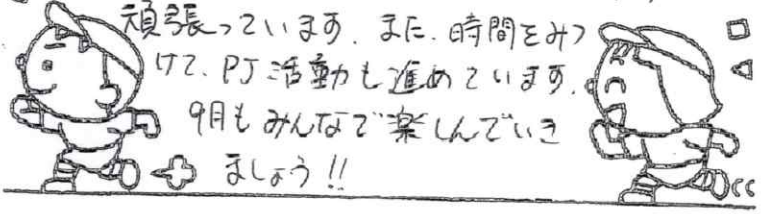 頑張っています。また、時間をみつ
けて、PJ活動も進めています。
9月もみんなで楽しんでいき
ましょう!!